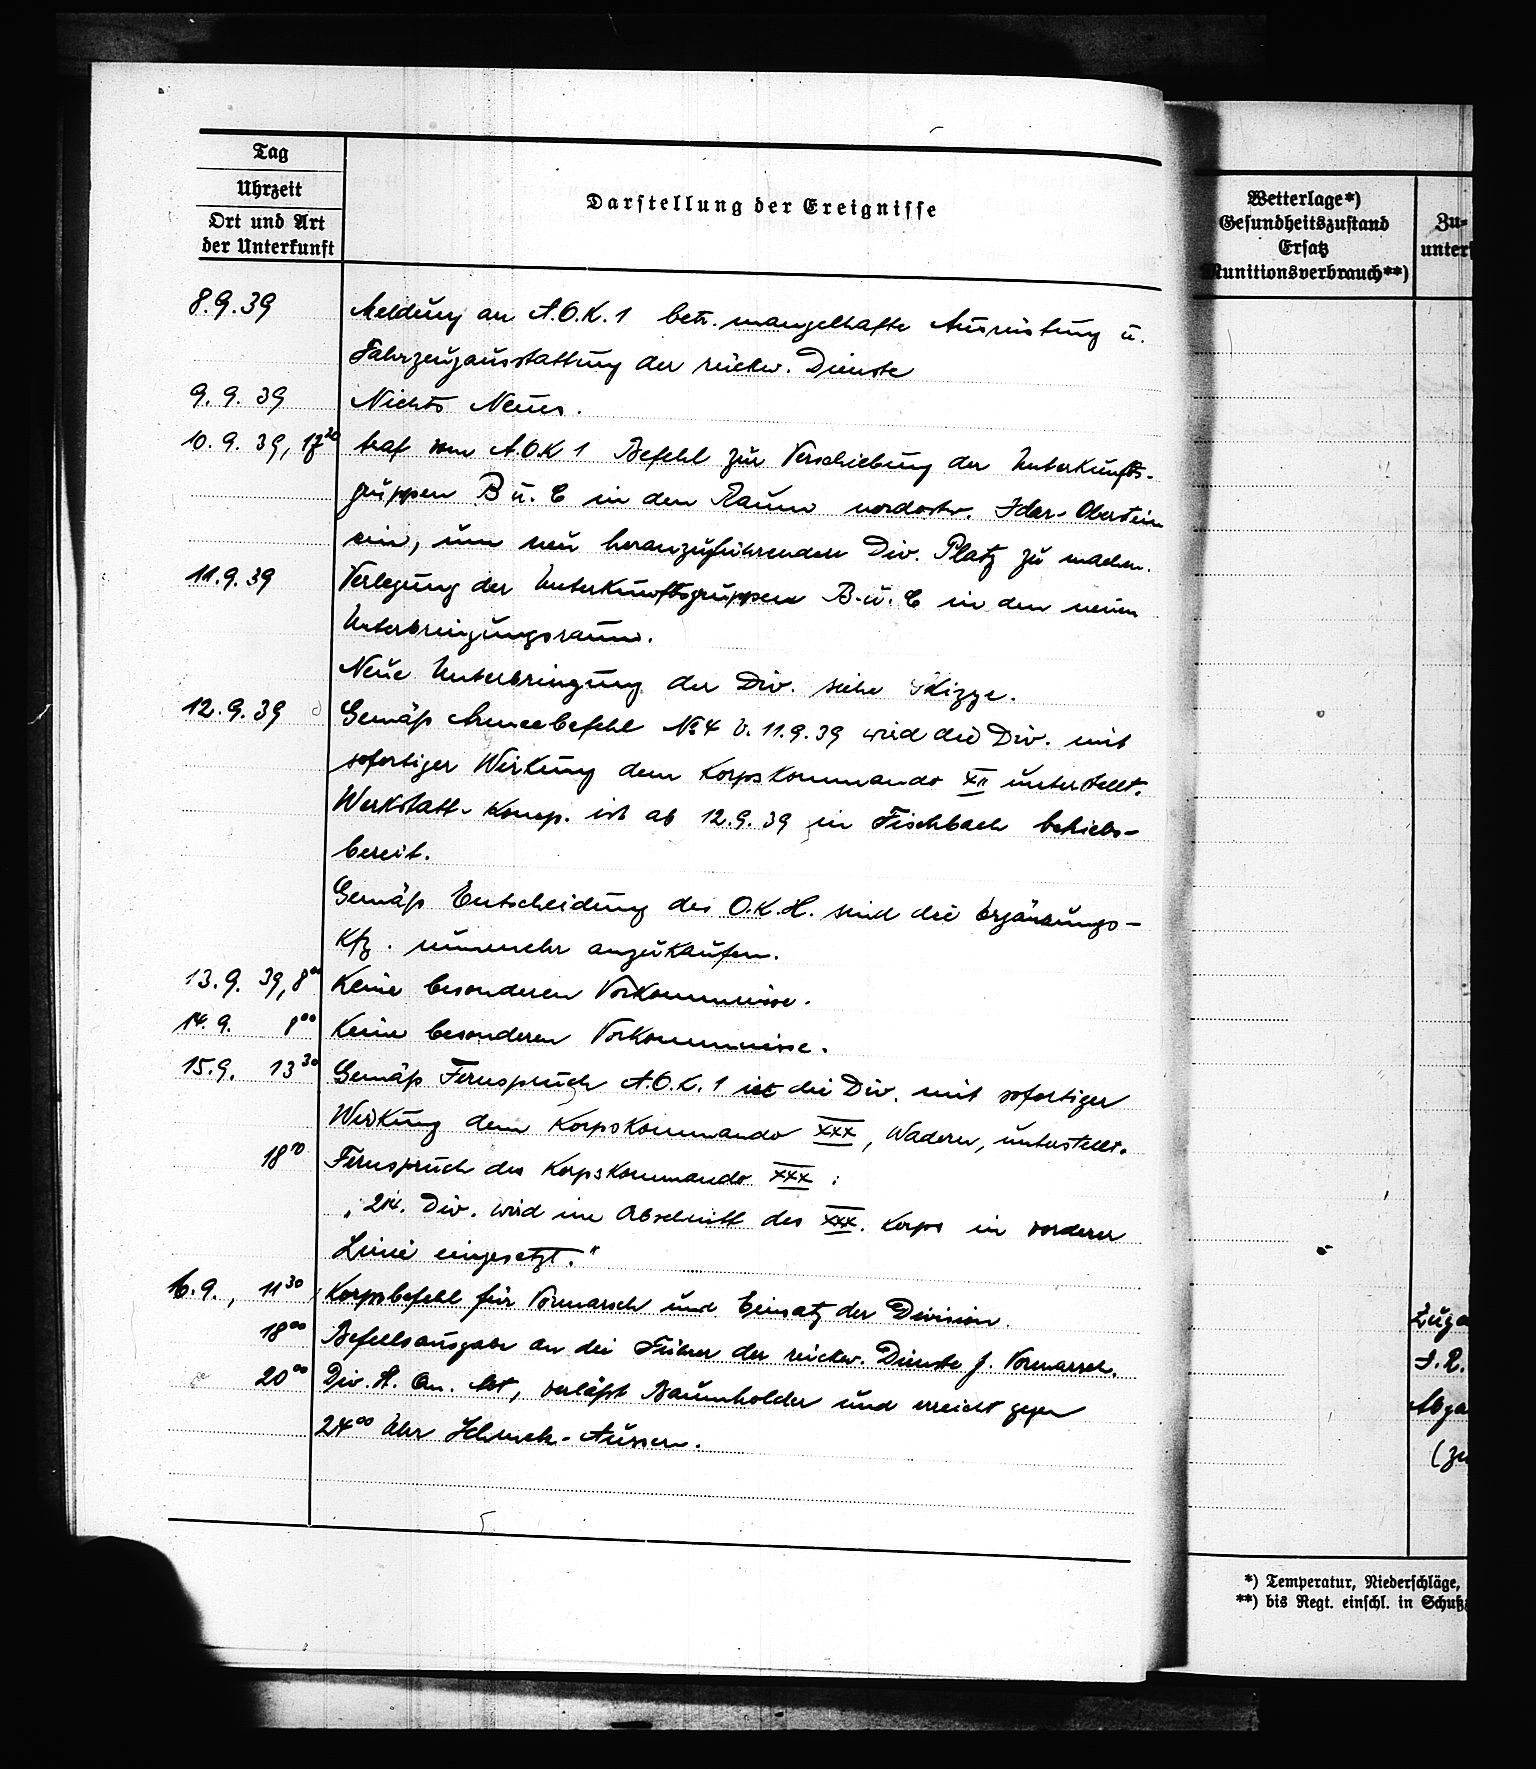 Tag
Uhrzeit
Ort und Art
der Unterkunft
Darstellung der Ereignisse
8.9.39 Meldung an A.O.K. 1 betr. mangelhafte Ausrüstung u.
Fahrzeugausstattung der rückw. Dienste
9.9.39 Nichts Neues.
10.9.39, 17²⁰ traf vom A.O.K 1 Befehl zur Verschiebung der Unterkunfts-
gruppen B u. C in den Raum nordostw. Idar-Oberstein
ein, um neu heranzuführenden Div. Platz zu machen.
11.9.39 Verlegung der Unterkunftsgruppen B. u. C in den neuen
Unterbringungsraum.
Neue Unterbringung der Div. siehe Skizze.
12.9.39 Gemäß Armeebefehl № 4 v. 11.9.39 wird die Div. mit
sofortiger Wirkung dem Korpskommando XII unterstellt.
Werkstatt-Komp. ist ab 12.9.39 in Fischbach betriebs-
bereit.
Gemäß Entscheidung des O.K.H. sind die Ergänzungs-
Kfz. nunmehr anzukaufen.
13.9.39, 8⁰⁰ Keine besonderen Vorkommnisse.
14.9. 8⁰⁰ Keine besonderen Vorkommnisse.
15.9. 13³⁰ Gemäß Fernspruch A.O.K. 1 ist die Div. mit sofortiger
Wirkung dem Korpskommando XXX, Wadern, unterstellt.
18¹⁰ Fernspruch des Korpskommando XXX:
"214. Div. wird im Abschnitt des XXX. Korps in vorderer
Linie eingesetzt."
16.9., 11³⁰ Korpsbefehl für Vormarsch und Einsatz der Division.
18⁰⁰ Befehlsausgabe an die Führer der rückw. Dienste f. Vormarsch.
20⁰⁰ Div. St. Qu. Abt, verläßt Baumholder und erreicht gegen
24⁰⁰ Uhr
Wetterlage*)
Gesundheitszustand
Ersatz
Munitionsverbrauch**)
Zu-
unter
Zuga
I.R.
Abga
(zu
*) Temperatur, Niederschläge,
**) bis Regt. einschl. in Schuß